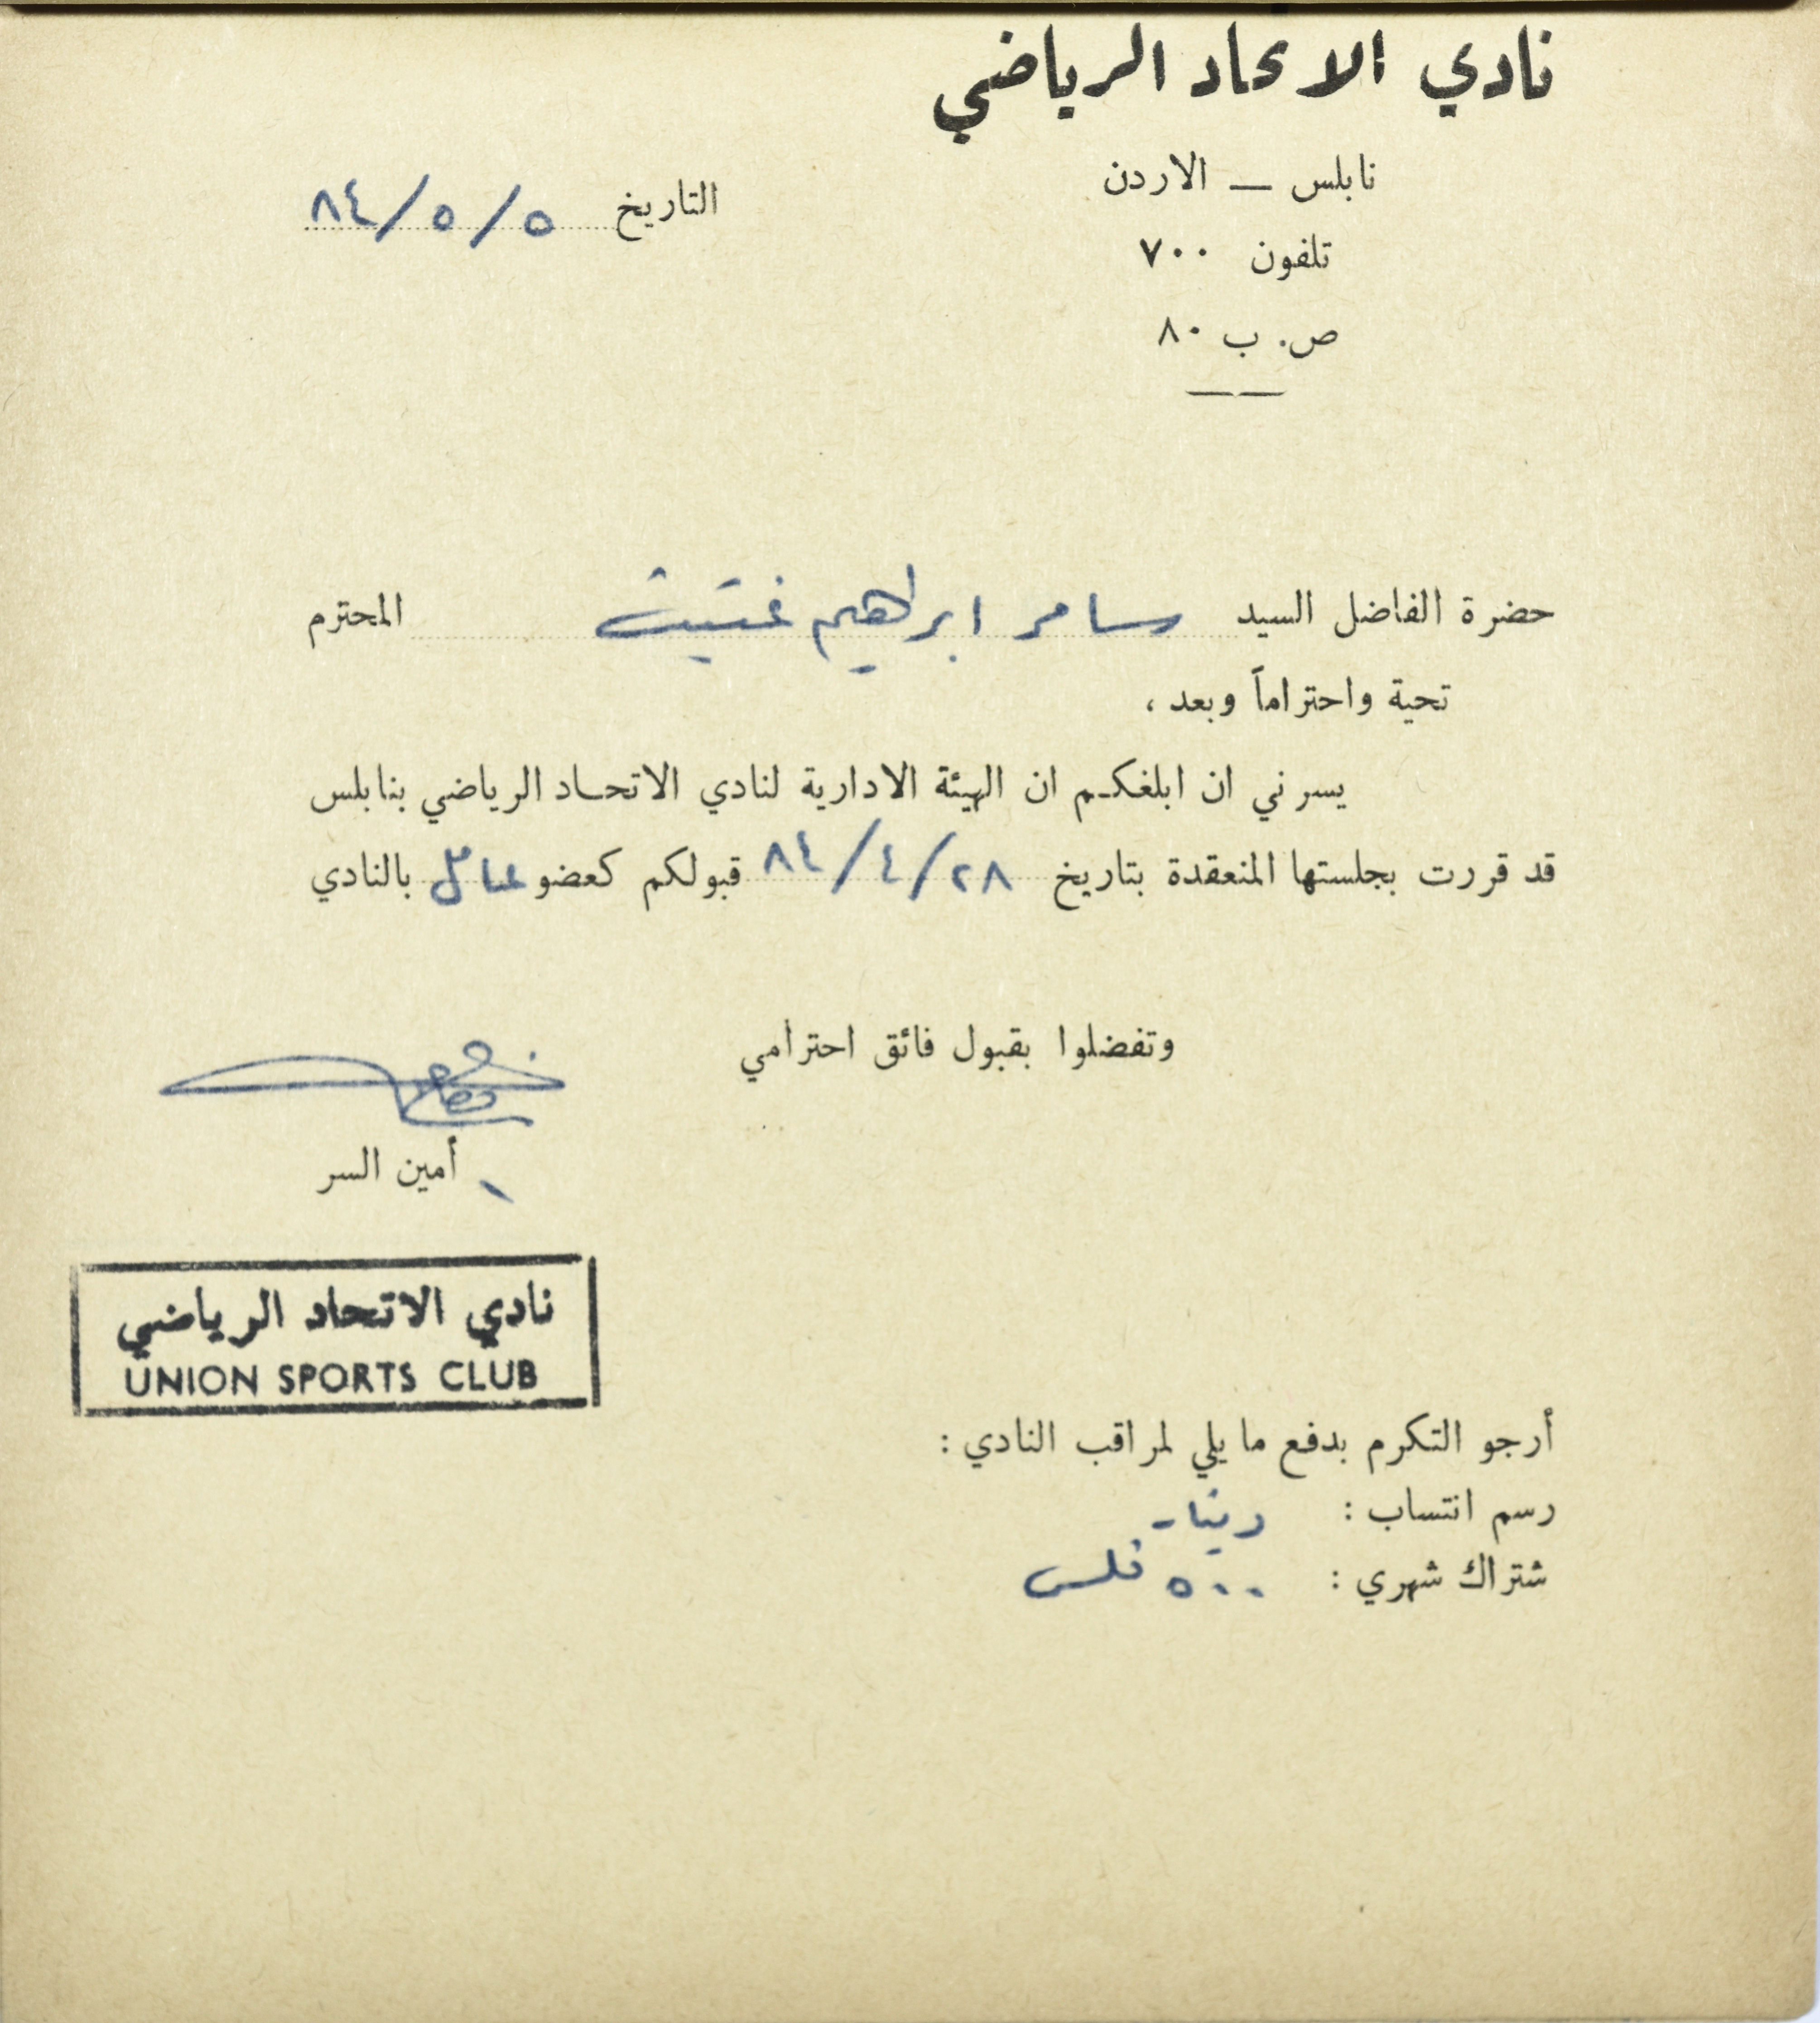 نادي الاتحاد الرياضي
نابلس — الاردن
التاريخ ٥/٥/٨٤
تلفون ٧٠٠
ص. ب ٨٠
حضرة الفاضل السيد سامر ابراهيم المحترم
تحية واحتراماً وبعد ،
يسرني ان ابلغكم ان الهيئة الادارية لنادي الاتحاد الرياضي بنابلس
قد قررت بجلستها المنعقدة بتاريخ ٢٨/٤/٨٤ قبولكم كعضو عامل بالنادي
وتفضلوا بقبول فائق احترامي
أمين السر
نادي الاتحاد الرياضي
UNION SPORTS CLUB
أرجو التكرم بدفع ما يلي لمراقب النادي :
رسم انتساب : دينار
شتراك شهري : ٥٠٠ فلس